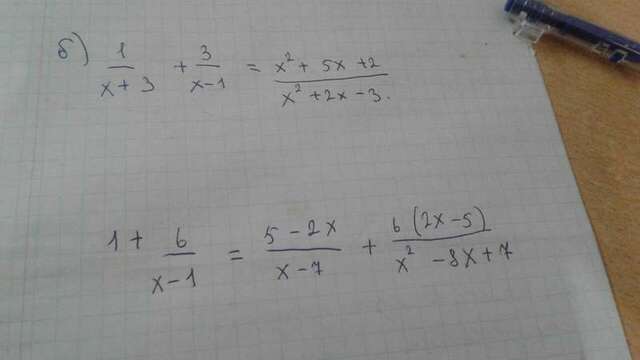 б) 1/(x+3) + 3/(x-1) = (x² + 5x + 2)/(x² + 2x - 3).
1 + 6/(x-1) = (5 - 2x)/(x-7) + 6(2x-5)/(x² - 8x + 7)